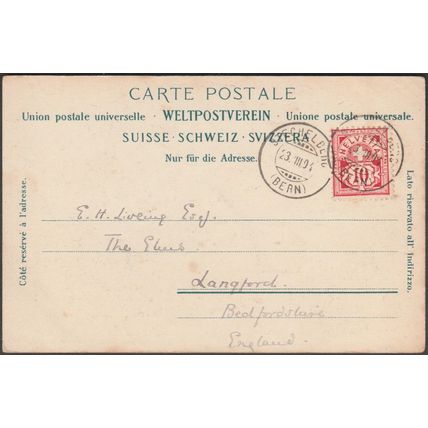 CARTE POSTALE
Union postale universelle · WELTPOSTVEREIN · Unione postale universale.
SUISSE · SCHWEIZ · SVIZZERA
Nur für die Adresse.
23.III.94
(BERN)
HELVETIA
10
Côté reservé à l'adresse.
Lato riservato all' Indirizzo.
E. H. Liveing Esq.
The Elms
Langford.
Bedfordshire
England.